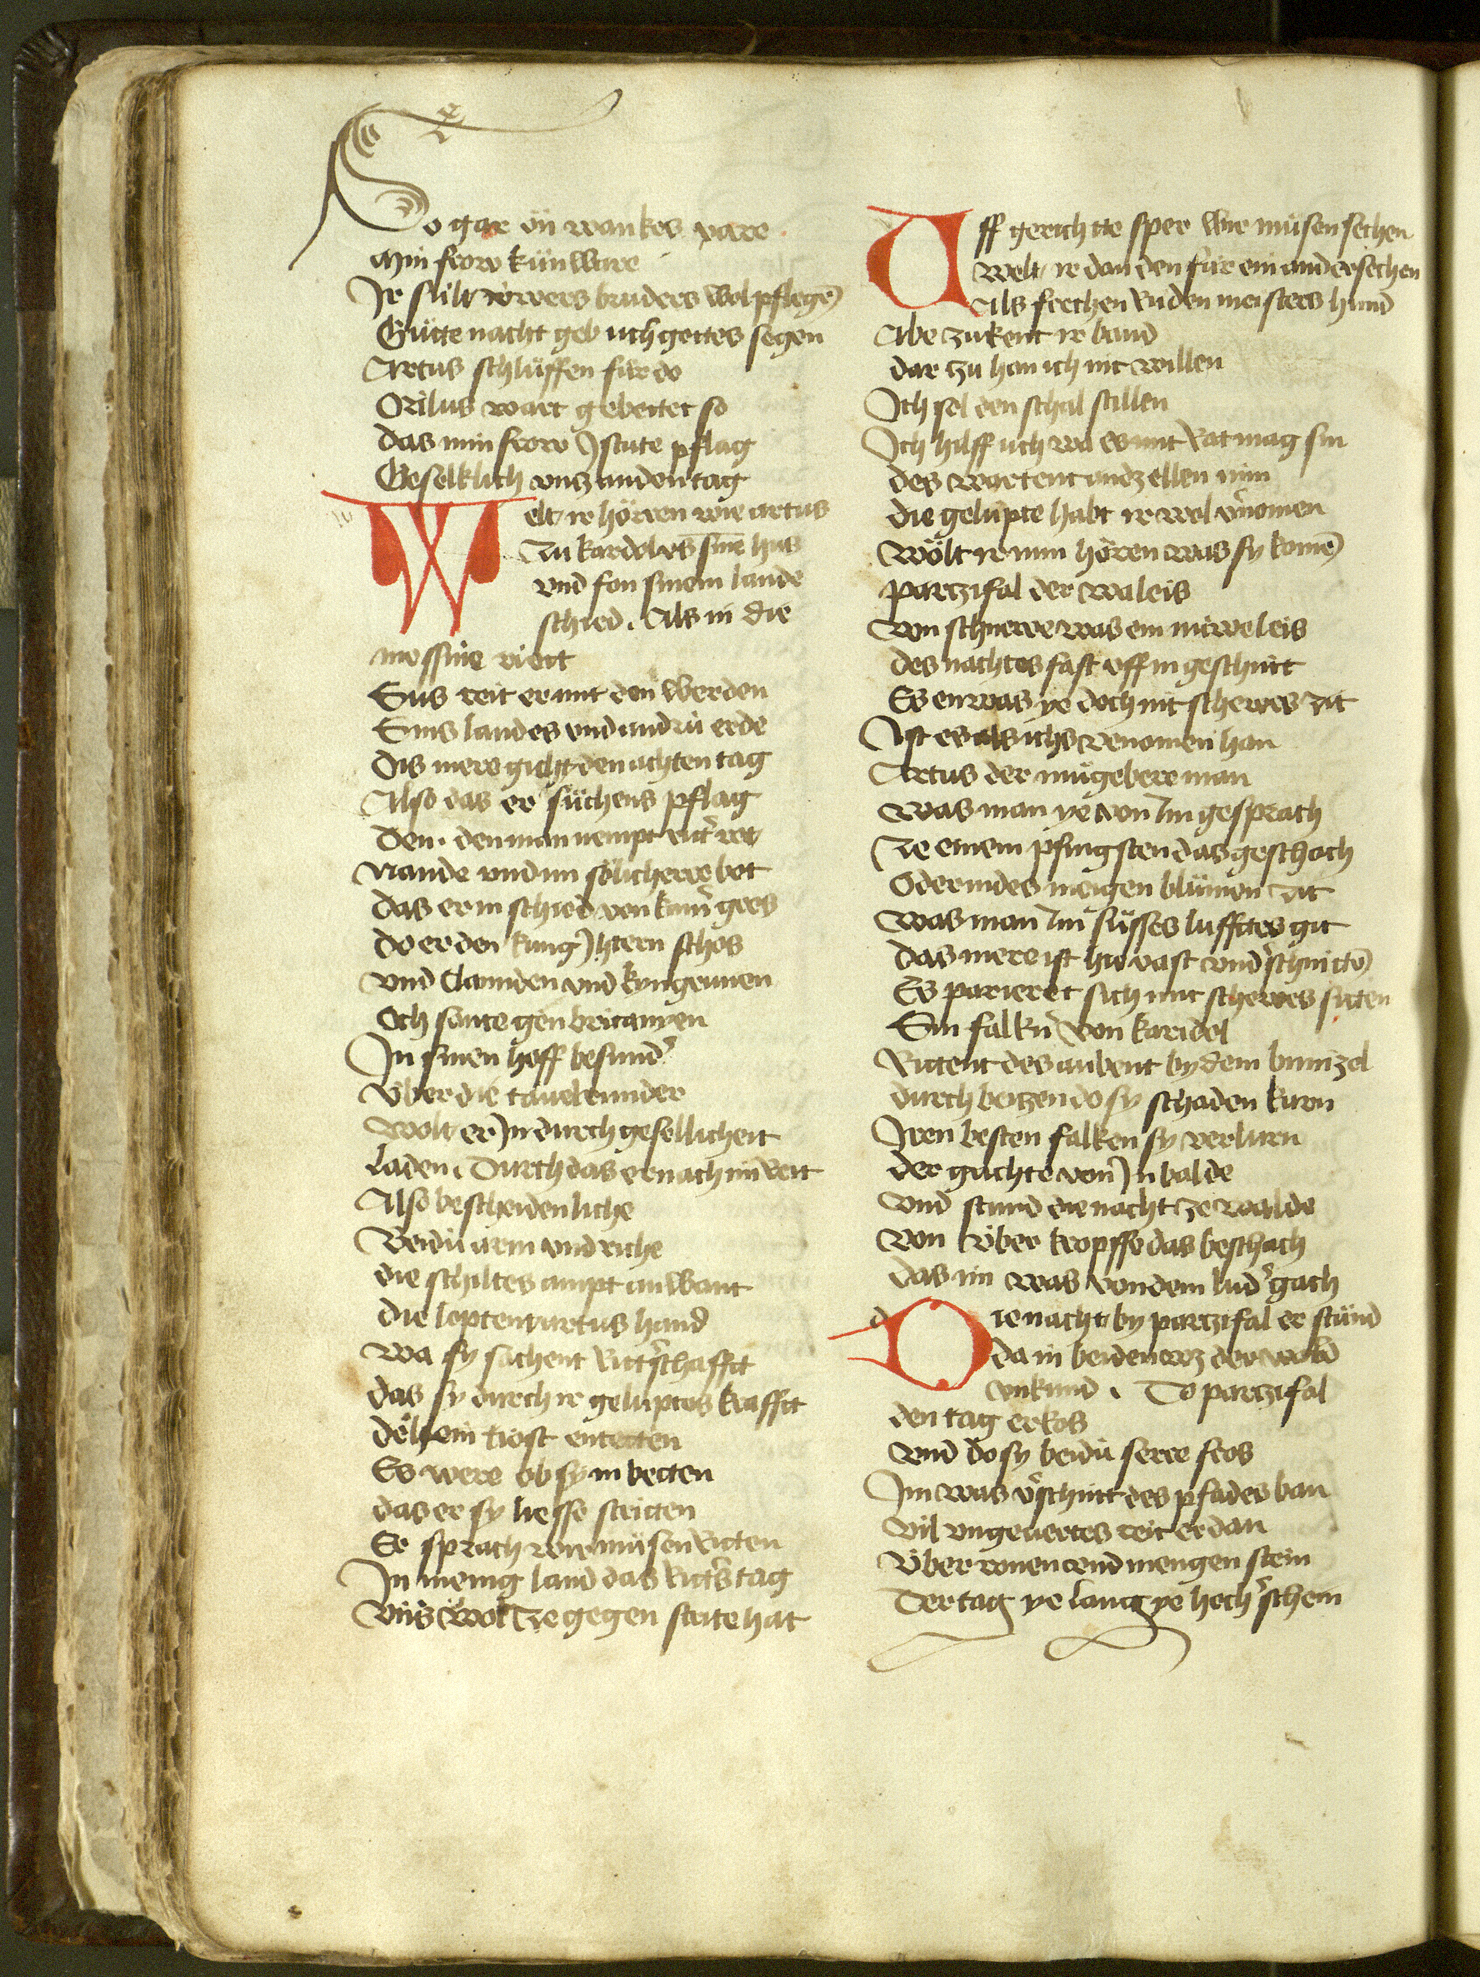 So gar on wankes vare
Min frow künware
Ir sült uwers bruders wol pflegē
Gütte nacht geb uch gottes segen
Artus schlüffen für do
Orilus wart gebettet so
das min frow Jstute pflag
Geselklich vntz an den tag
Welt ir hörren wie artus
Zu kardol vs sine hus
vnd fon sinem lande
schied. Als in die
massine riett
Sus reit er mit den werden
Sins landes vnd andrü erde
Dis mere gicht den achten tag
Also das er süchens pflag
Dem. den man nempt ritt' rot
Nande vnd im sölicherre bot
das er in schied von kum' gros
do er den kung Jhtern schos
vnd Clamiden vnd kyngrunen
Och sante gen britanyen
In sinen hoff besund'
Vber die tauelrunder
Wolt er Jn durch gesellicheit
Laden. Durch das er nach im reit
Also bescheidenliche
Beidü arm vnd riche
die schiltes ampt an want
Die lopten artus hand
Wa sy sachent ritt'schafft
das sy durch ir geluptes krafft
dehein tiost entetten
Es were ob sy in betten
das er sy liesse stritten
Er sprach wir müsen ritten
In menig land das ritt's tag
Vns wol ze gegen strite hat
Vff gericht tte sper wir müsen sechen
Welt ir dan den für ein ander sechen
Als frechen ruden meisters hund
Abe zukent ir band
dar zu han ich nit willen
Ich sol den schal stillen
Ich hilff uch wa es mit rat mag sin
des wartent andz ellen min
die gelupte habt ir wol v'nomen
Wölt ir nun hören was sy komē
Partzifal der waleis
Von schnewe was ein nüwe leis
des nachtes fast vff in geschnitt
Es enwas ye doch nit schewes zit
Ist es als ichs venomen han
Artus der mügebere man
Was man ye von Im gesprach
Ze einem pfingsten das geschach
Oder in des meigen blümen zit
Was man Im süsses lufftes git
das mere ist hie vast vnd'schnittē
Es parieret sich mit schewes sitten
Sin falkn' von karidol
Rittent des aubent by dem bimizol
durch beitzen do sy schaden kurn
Iren besten falken sy verlurn
der gachte von Jn balde
Vnd stund die nacht ze walde
Von über kropffe das beschach
das im was von dem lud' gach
Die nacht by partzifal er stünd
da in beiden wz der wald
vnkund. Do partzifal
den tag erkos
Vnd do sy beidü serre fros
Im was v'schnitt des pfades ban
Vil vngeuertes reit er dan
Vber ronen vnd mengen stein
Der tag ye lang ye hoch'schein